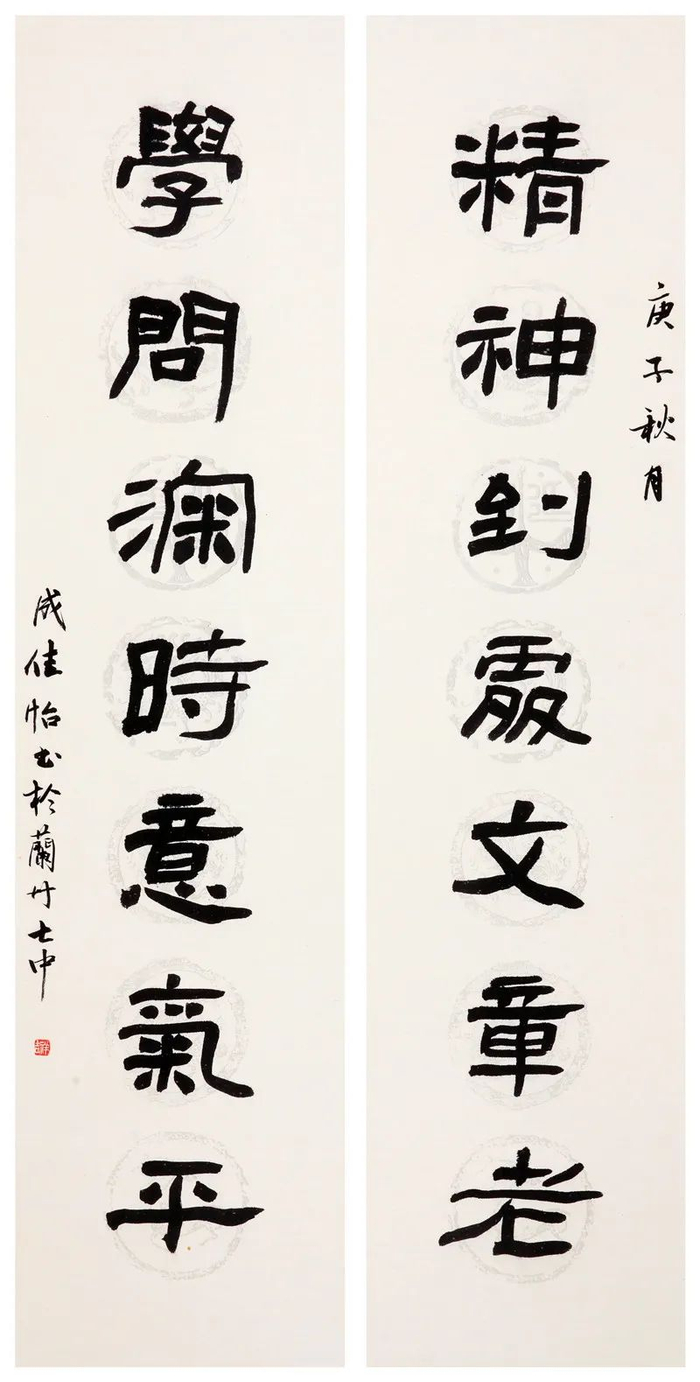 庚子秋月
精神到處文章老
學問深時意氣平
成佳怡书於蘭州七中